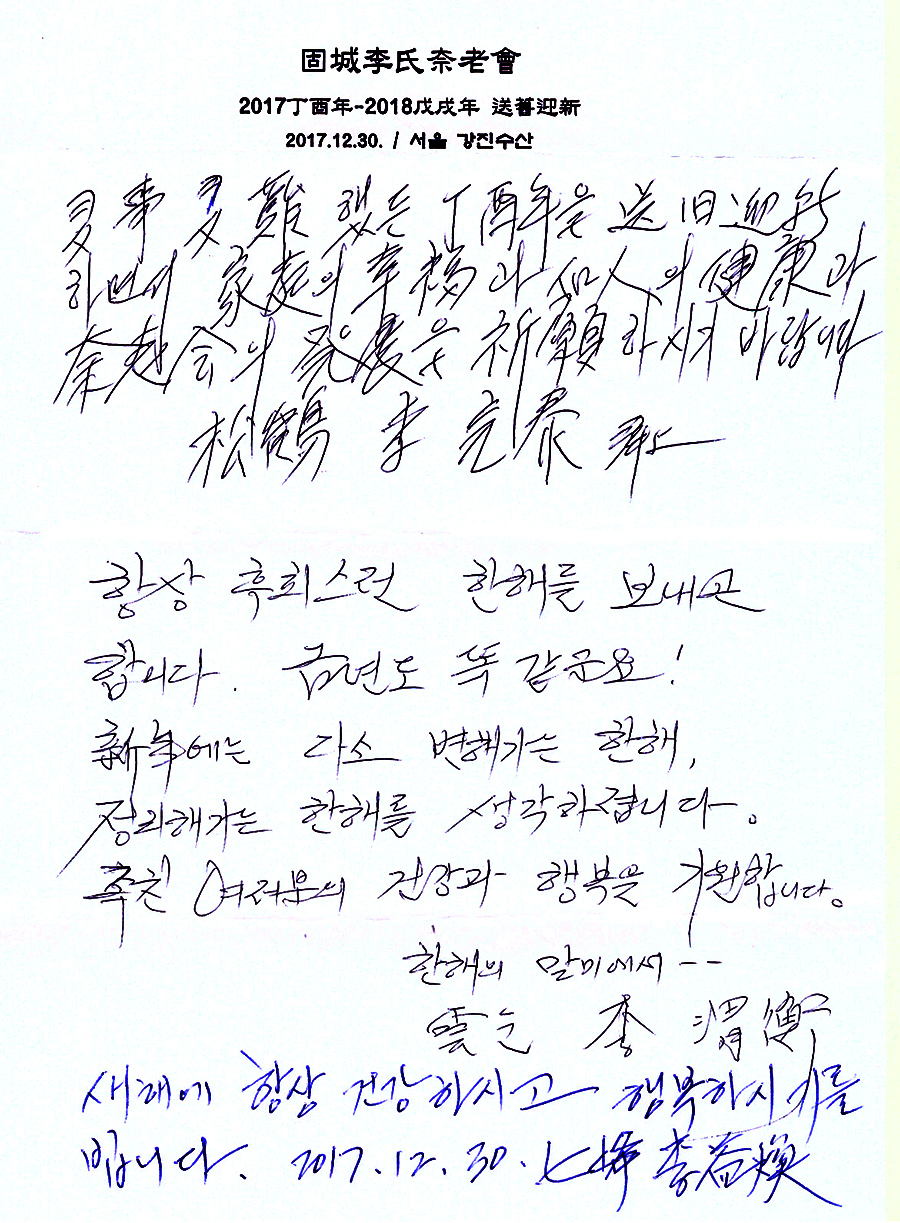 固城李氏奈老會
2017丁酉年-2018戊戌年 送舊迎新
2017.12.30. / 서울 강진수산
多事多難 했든 丁酉年을 送旧迎新
하면서 家庭의 幸福과 個人의 健康과
奈老会의 発展을 祈願하시기 바랍니다
松鶴 李 完 拜上
항상 후회스런 한해를 보내곤
합니다. 금년도 똑 같군요!
新年에는 다소 변해가는 한해,
정리해가는 한해를 생각하렵니다.
족친 여러분의 건강과 행복을 기원합니다。
한해의 말미에서 --
雲 李 渭衡
새해에 항상 건강하시고 행복하시기를
빕니다. 2017.12.30. 七峰 李益煥